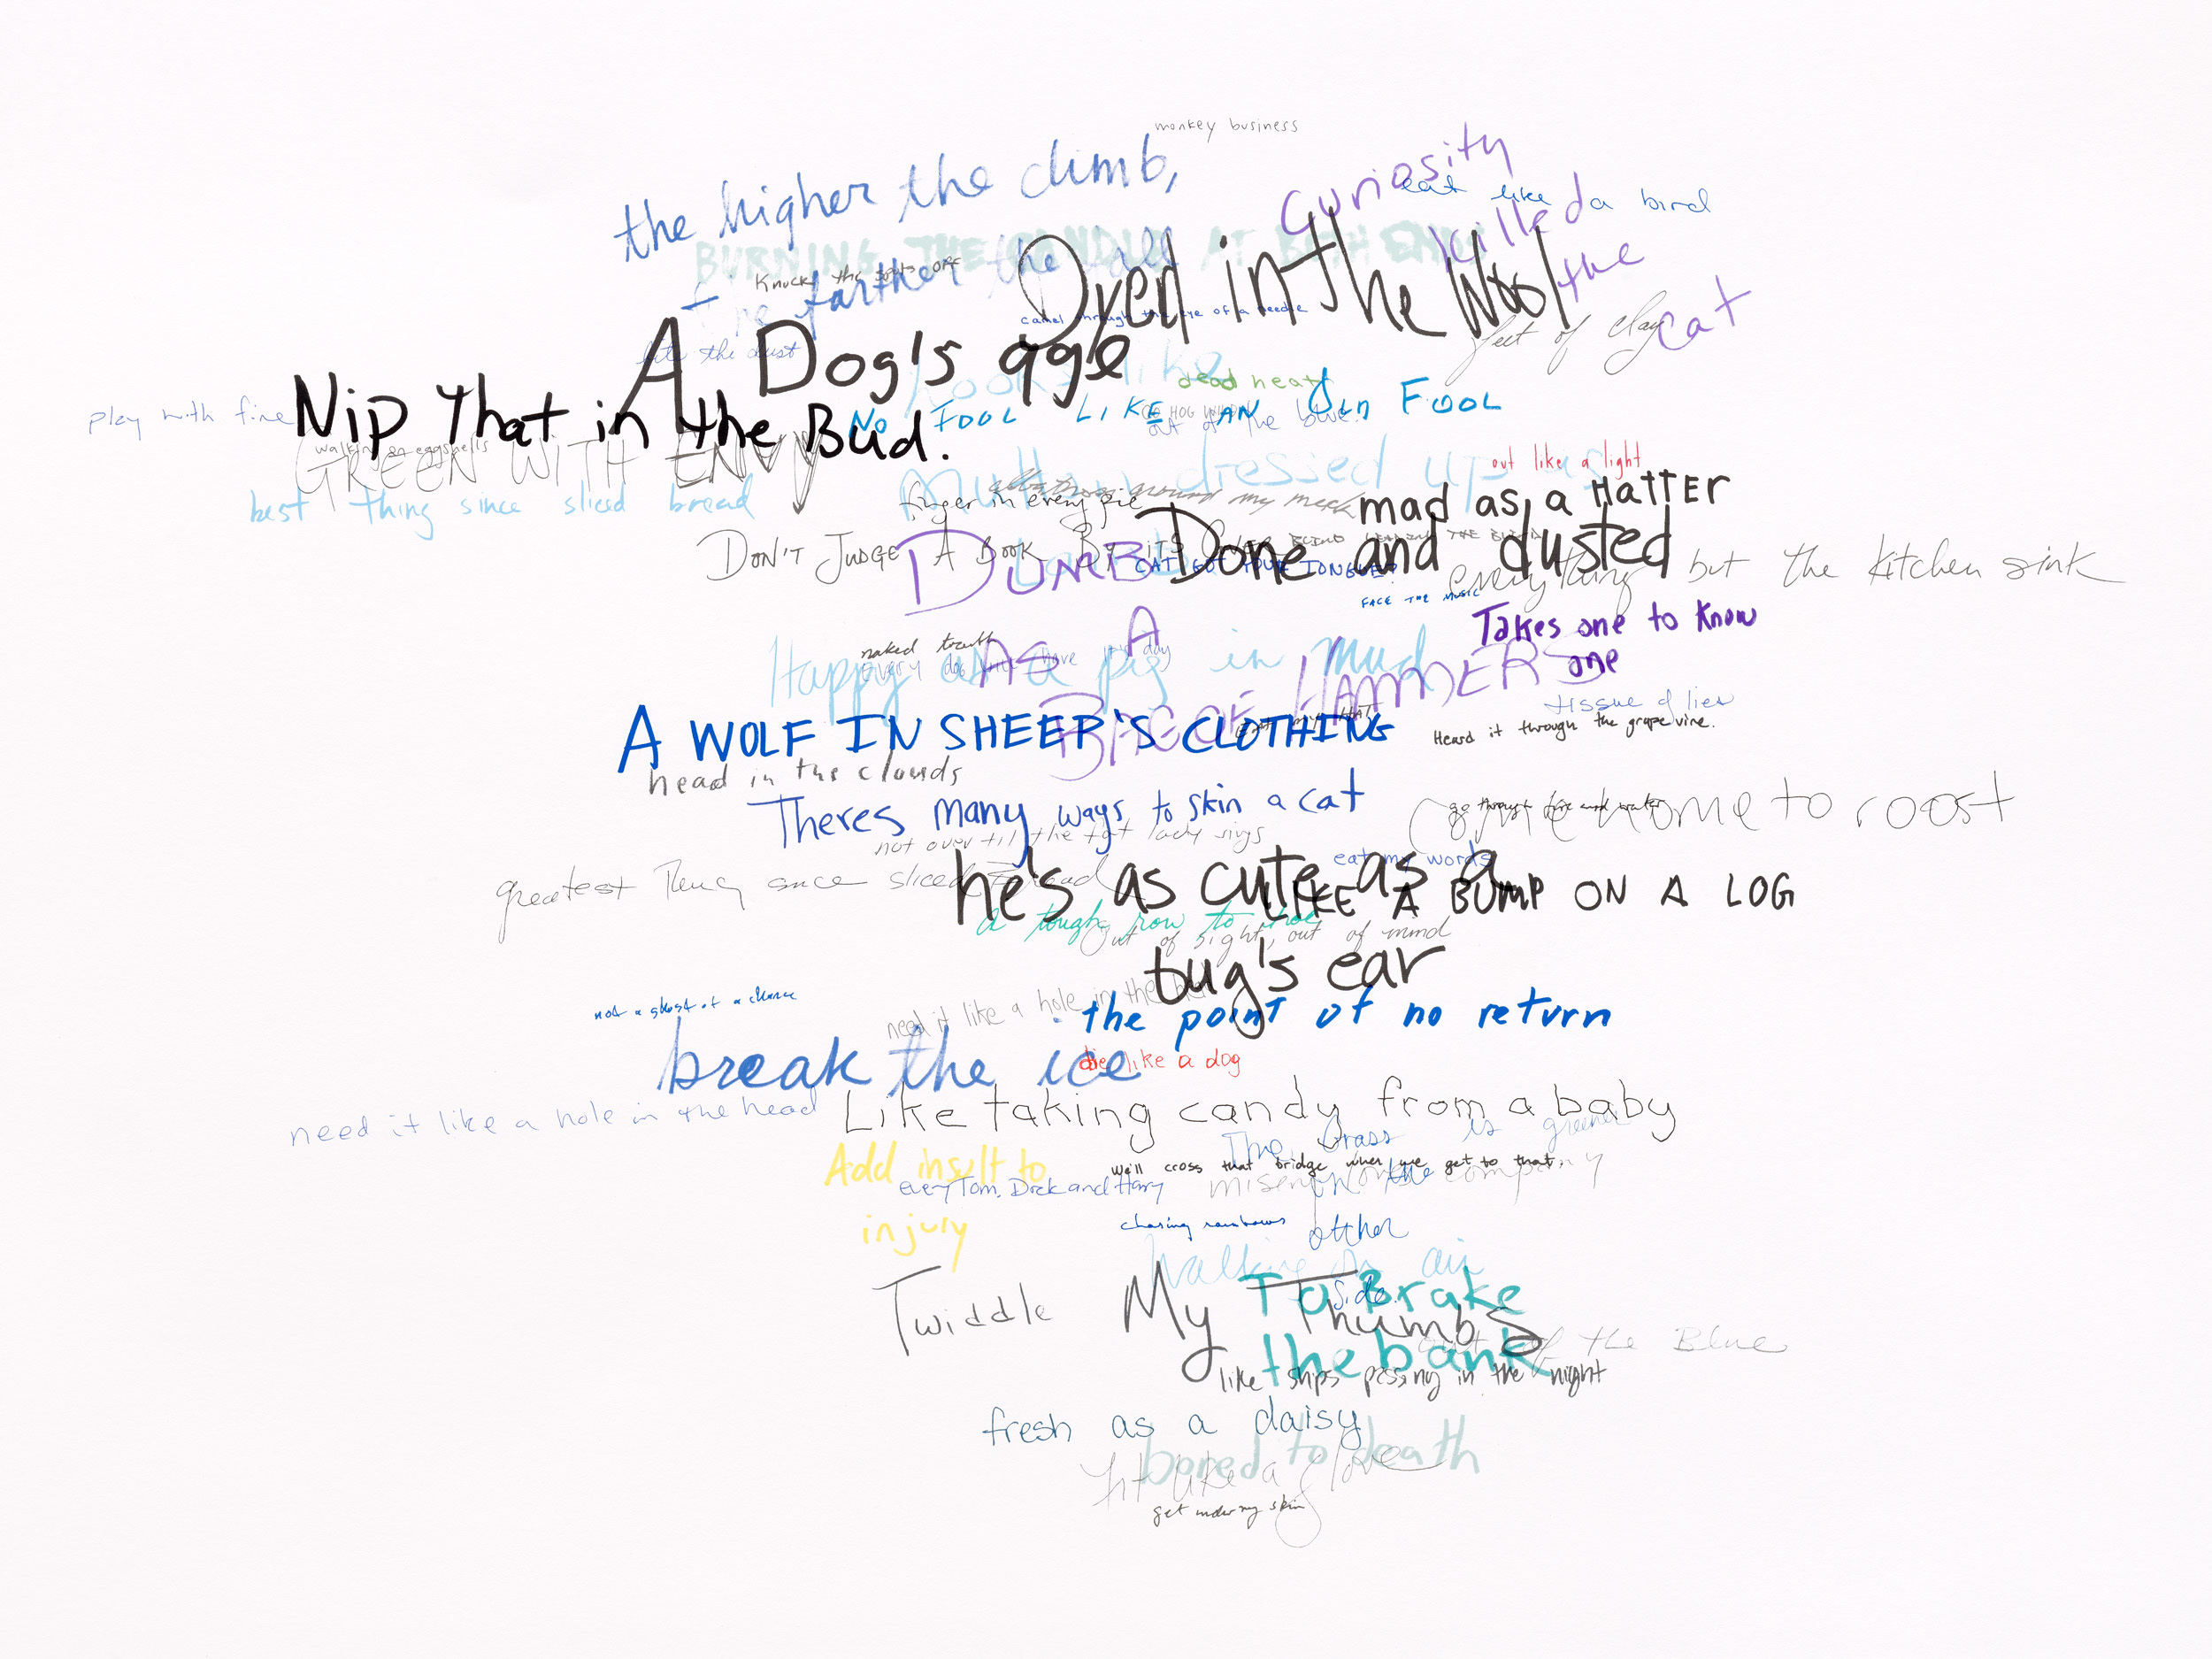 monkey business
the higher the climb,
the farther the fall
Curiosity
killed
the
cat
eat like a bird
BURNING THE CANDLE AT BOTH ENDS
Knock the spots off
Dyed in the Wool
camel through the eye of a needle
feet of clay
A Dog's age
bite the dust
looks like
dead heat
Nip that in the Bud.
play with fire
NO FOOL LIKE AN OLD FOOL
HOG
out of the blue
walkin on eggshells
GREEN WITH ENVY
best thing since sliced bread
Mutton dressed up as
out like a light
albatross around my neck
finger in every pie
mad as a HATTER
Done and dusted
DON'T JUDGE A BOOK BY ITS COVER
BLIND LEADING THE BLIND
CAT GOT YOUR TONGUE?
everything but the kitchen sink
FACE THE MUSIC
DUMB
AS A
BAG OF HAMMERS
Takes one to know
one
naked truth
every dog will have its day
Happy as a pig in mud
tissue of lies
Heard it through the grapevine.
A WOLF IN SHEEP'S CLOTHING
EAT MY HAT
head in the clouds
Theres many ways to skin a cat
go through fire and water
come to roost
not over til the fat lady sings
eat my words
greatest thing since sliced bread
he's as cute as a
bug's ear
LIKE A BUMP ON A LOG
a tough row to hoe
out of sight, out of mind
not a ghost of a chance
need it like a hole in the head
the point of no return
break the ice
die like a dog
need it like a hole in the head
Like taking candy from a baby
The Grass is greener
on the
other
side
Add insult to
injury
We'll cross that bridge when we get to that.
every Tom, Dick and Harry
misery loves company
chasing rainbows
walking on air
Twiddle My Thumbs
To Brake
the bank
out of the Blue
like ships passing in the night
fresh as a daisy
bored to death
fit like a glove
get under my skin